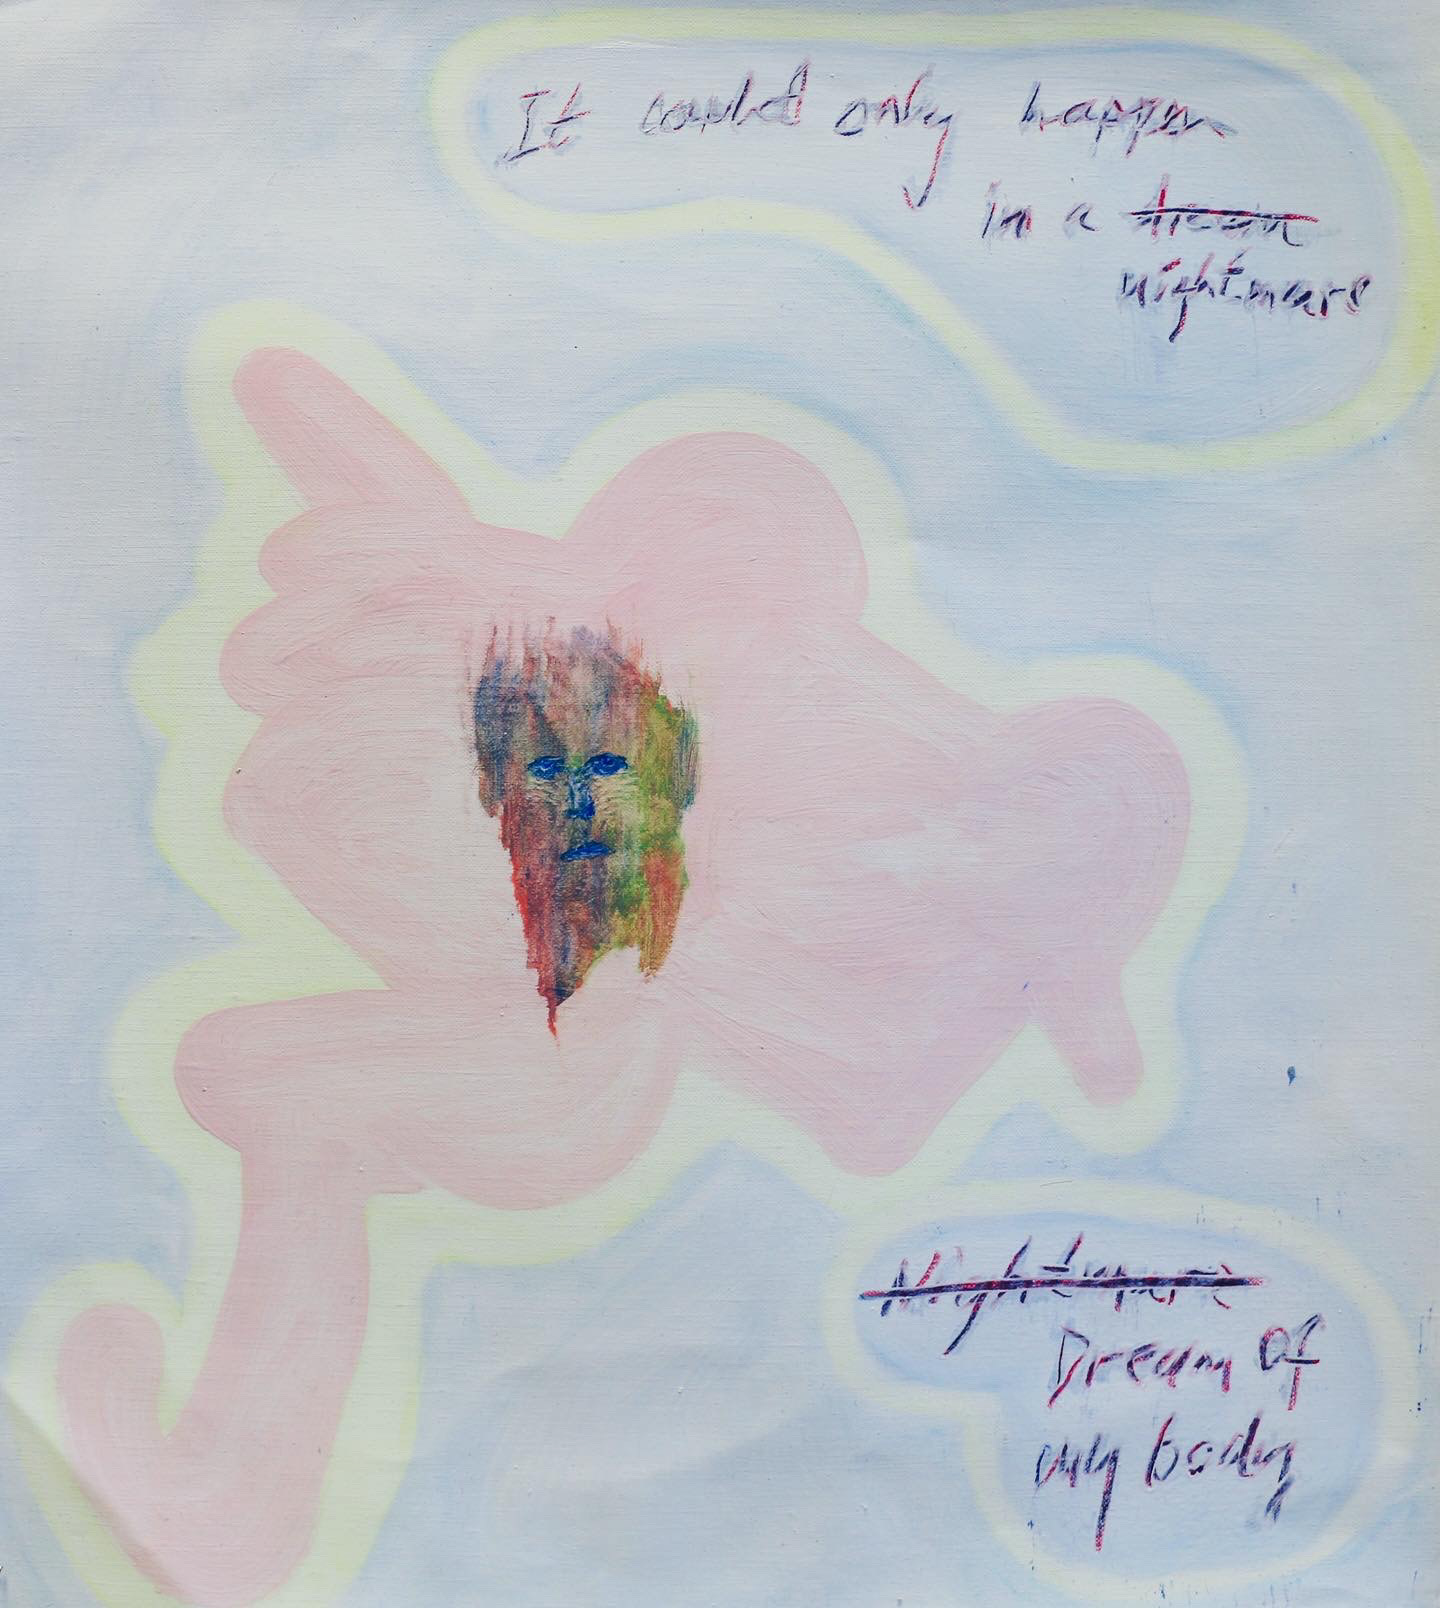 It could only happen
in a dream
nightmare
Nightmare
Dream Of
my body